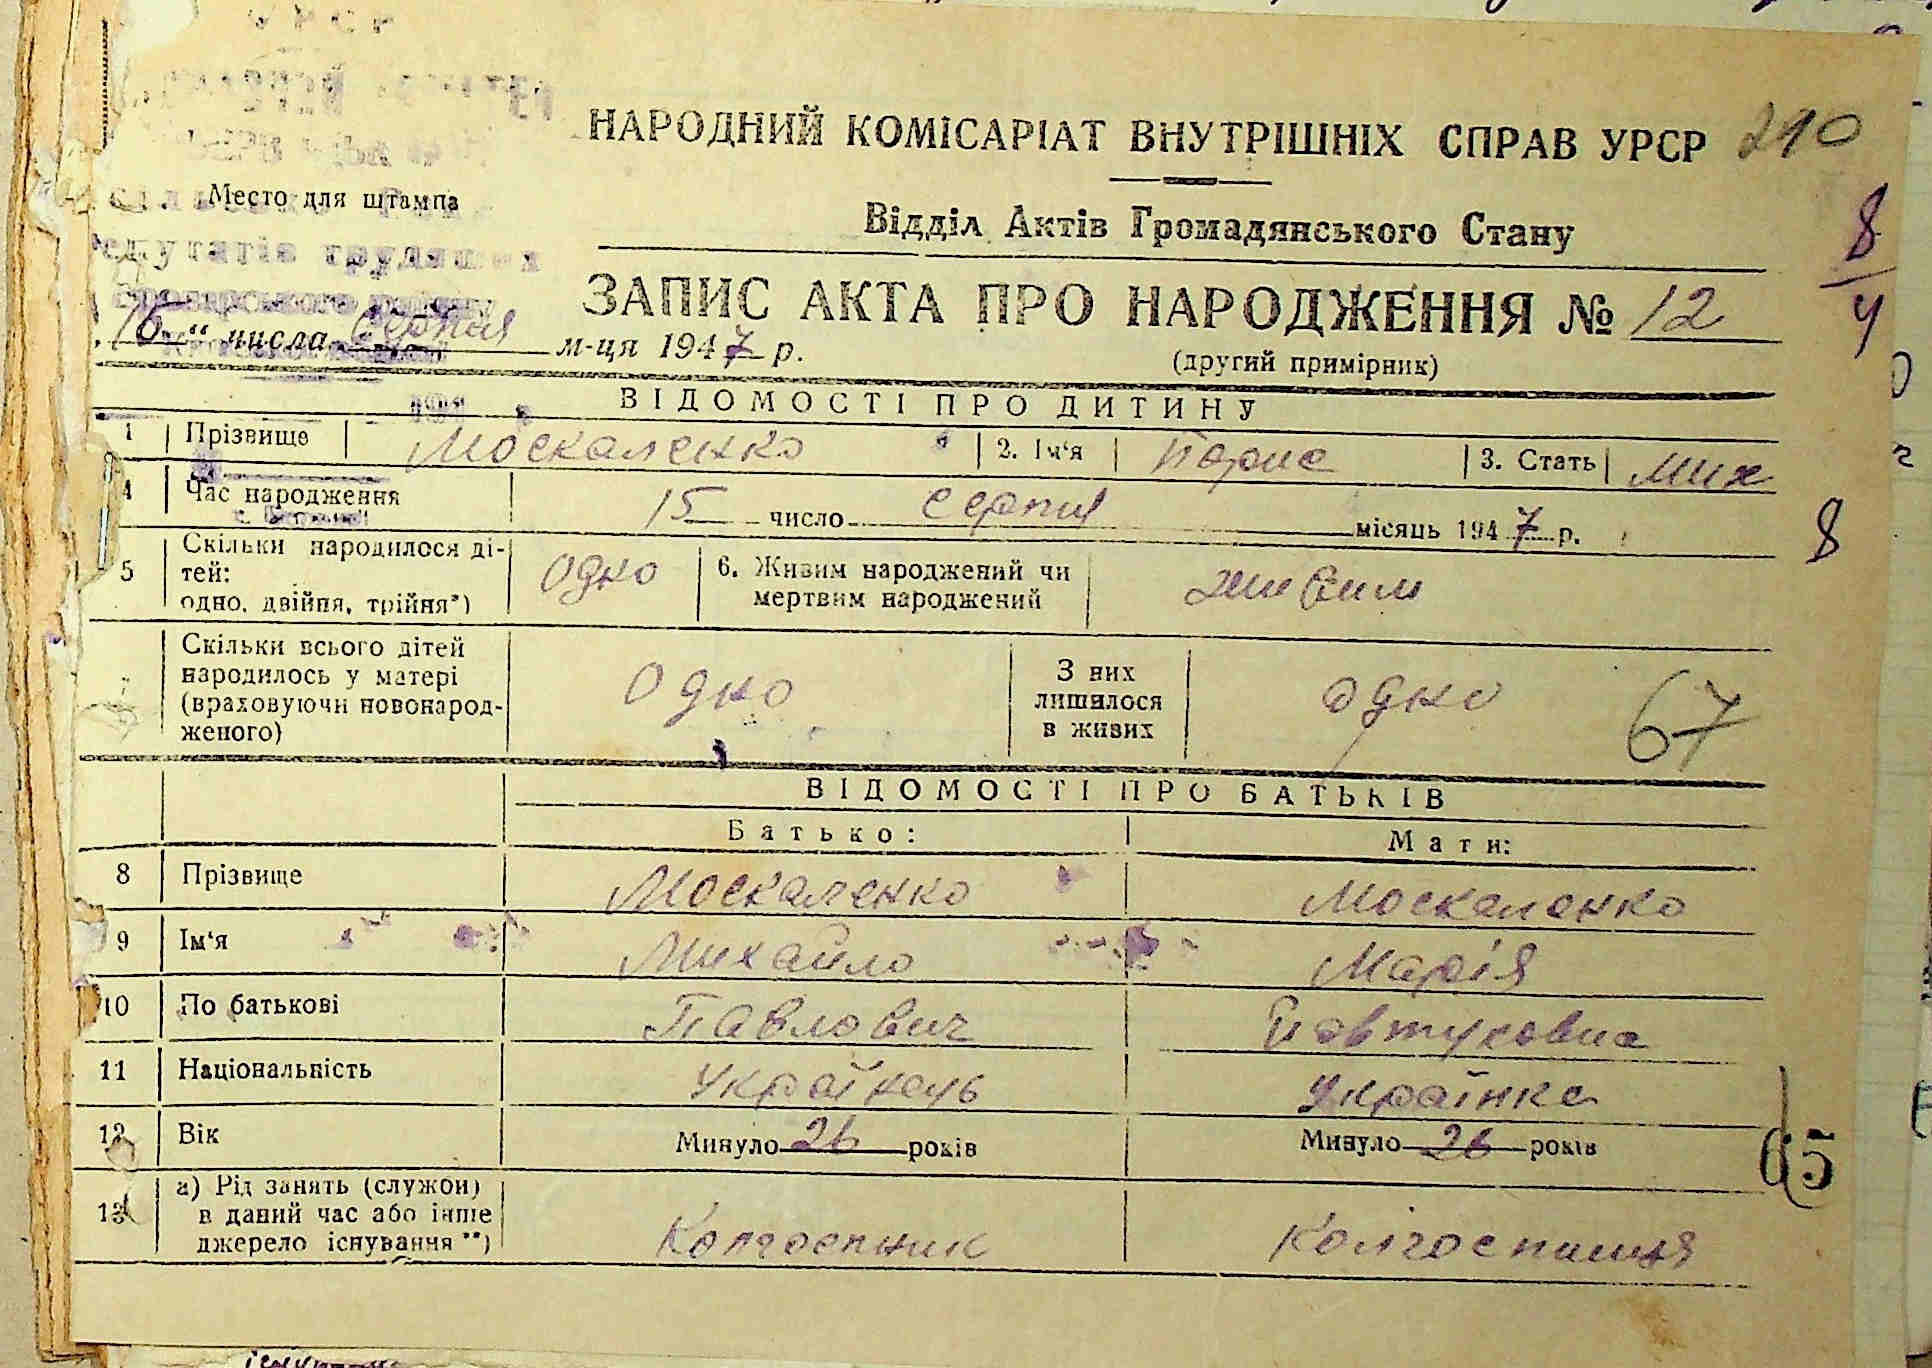 НАРОДНИЙ КОМІСАРІАТ ВНУТРІШНІХ СПРАВ УРСР 210
Место для штампа
Відділ Актів Громадянського Стану
8/4
депутатів трудящих
ЗАПИС АКТА ПРО НАРОДЖЕННЯ № 12
(другий примірник)
"16" числа серпня м-ця 1947 р.
ВІДОМОСТІ ПРО ДИТИНУ
1 Прізвище Москаленко 2. Ім'я 3. Стать
4 Час народження 15 число серпня місяць 1947 р.
8
5 Скільки народилося ді-
тей:
одно, двійня, трійня*) одно 6. Живим народжений чи
мертвим народжений живим
Скільки всього дітей
народилось у матері
(враховуючи новонарод-
женого) Одно З них
лишилося
в живих одно 67
ВІДОМОСТІ ПРО БАТЬКІВ
Батько: Мати:
8 Прізвище Москаленко Москаленко
9 Ім'я Михайло Марія
10 По батькові Павлович
11 Національність Українець Українка
12 Вік Минуло 26 років Минуло 26 років
65
13 а) Рід занять (служби)
в даний час або інше
джерело існування **) Колгоспник Колгоспниця